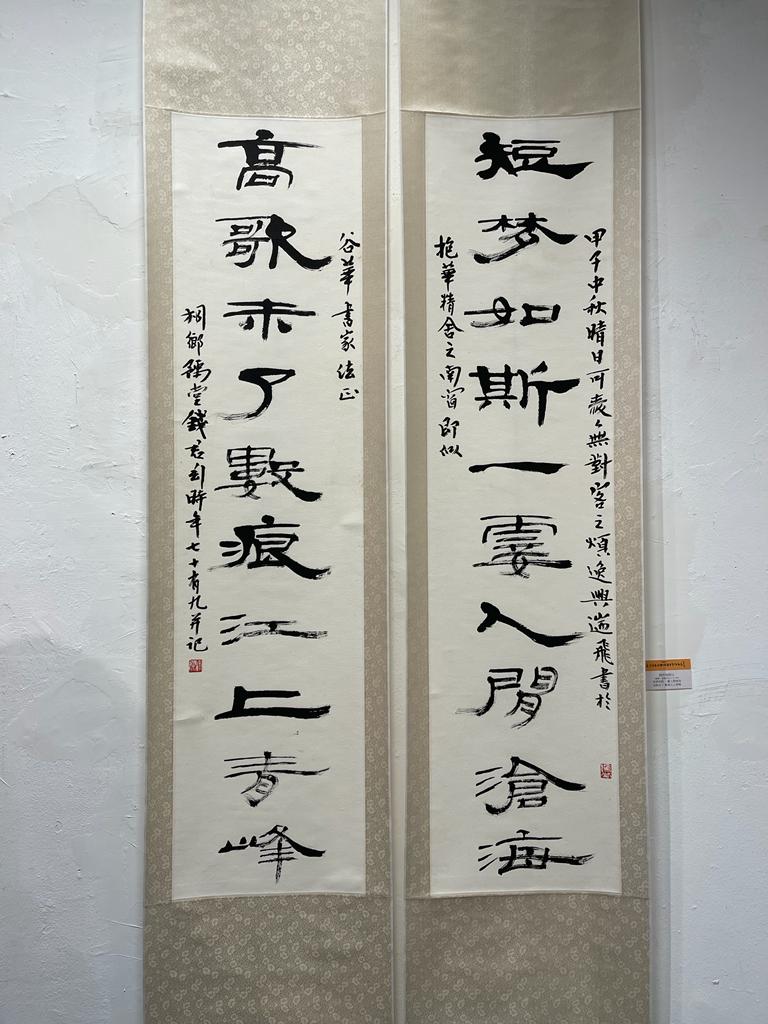 甲子中秋晴日可愛無對客之煩逸興遄飛書於
短梦如斯一霎人間滄海
抱華精舍之南窗即似
谷華書家法正
高歌未了數痕江上青峰
桐鄉豫堂錢君匋時年七十有九并記